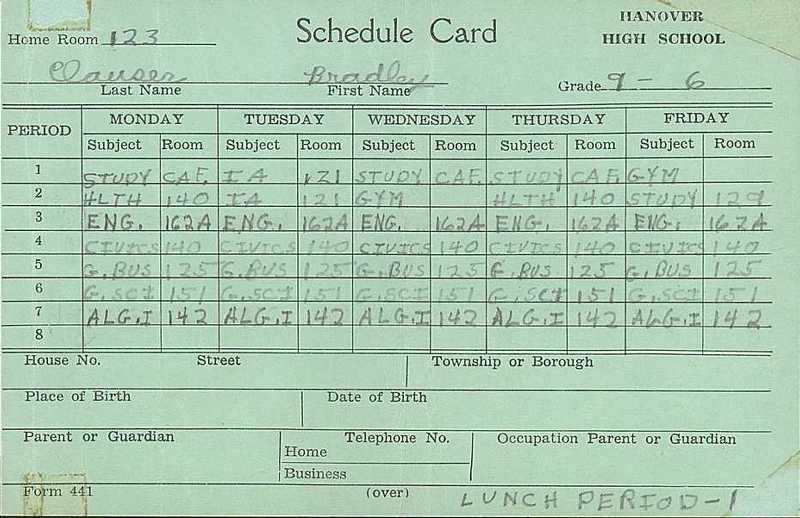 Home Room 123 Schedule Card HANOVER HIGH SCHOOL
Clauser Bradley
Last Name First Name Grade 9 - 6
PERIOD MONDAY TUESDAY WEDNESDAY THURSDAY FRIDAY
Subject Room Subject Room Subject Room Subject Room Subject Room
1 STUDY CAF. IA 121 STUDY CAF. STUDY CAF. GYM
2 HLTH 140 IA 121 GYM HLTH 140 STUDY 129
3 ENG. 162A ENG. 162A ENG. 162A ENG. 162A ENG. 162A
4 CIVICS 140 CIVICS 140 CIVICS 140 CIVICS 140 CIVICS 140
5 G.BUS 125 G.BUS 125 G.BUS 125 G.BUS 125 G.BUS 125
6 G.SCI 151 G.SCI 151 G.SCI 151 G.SCI 151 G.SCI 151
7 ALG.I 142 ALG.I 142 ALG.I 142 ALG.I 142 ALG.I 142
8
House No. Street Township or Borough
Place of Birth Date of Birth
Parent or Guardian Telephone No. Occupation Parent or Guardian
Home
Business
Form 441 (over) LUNCH PERIOD-1